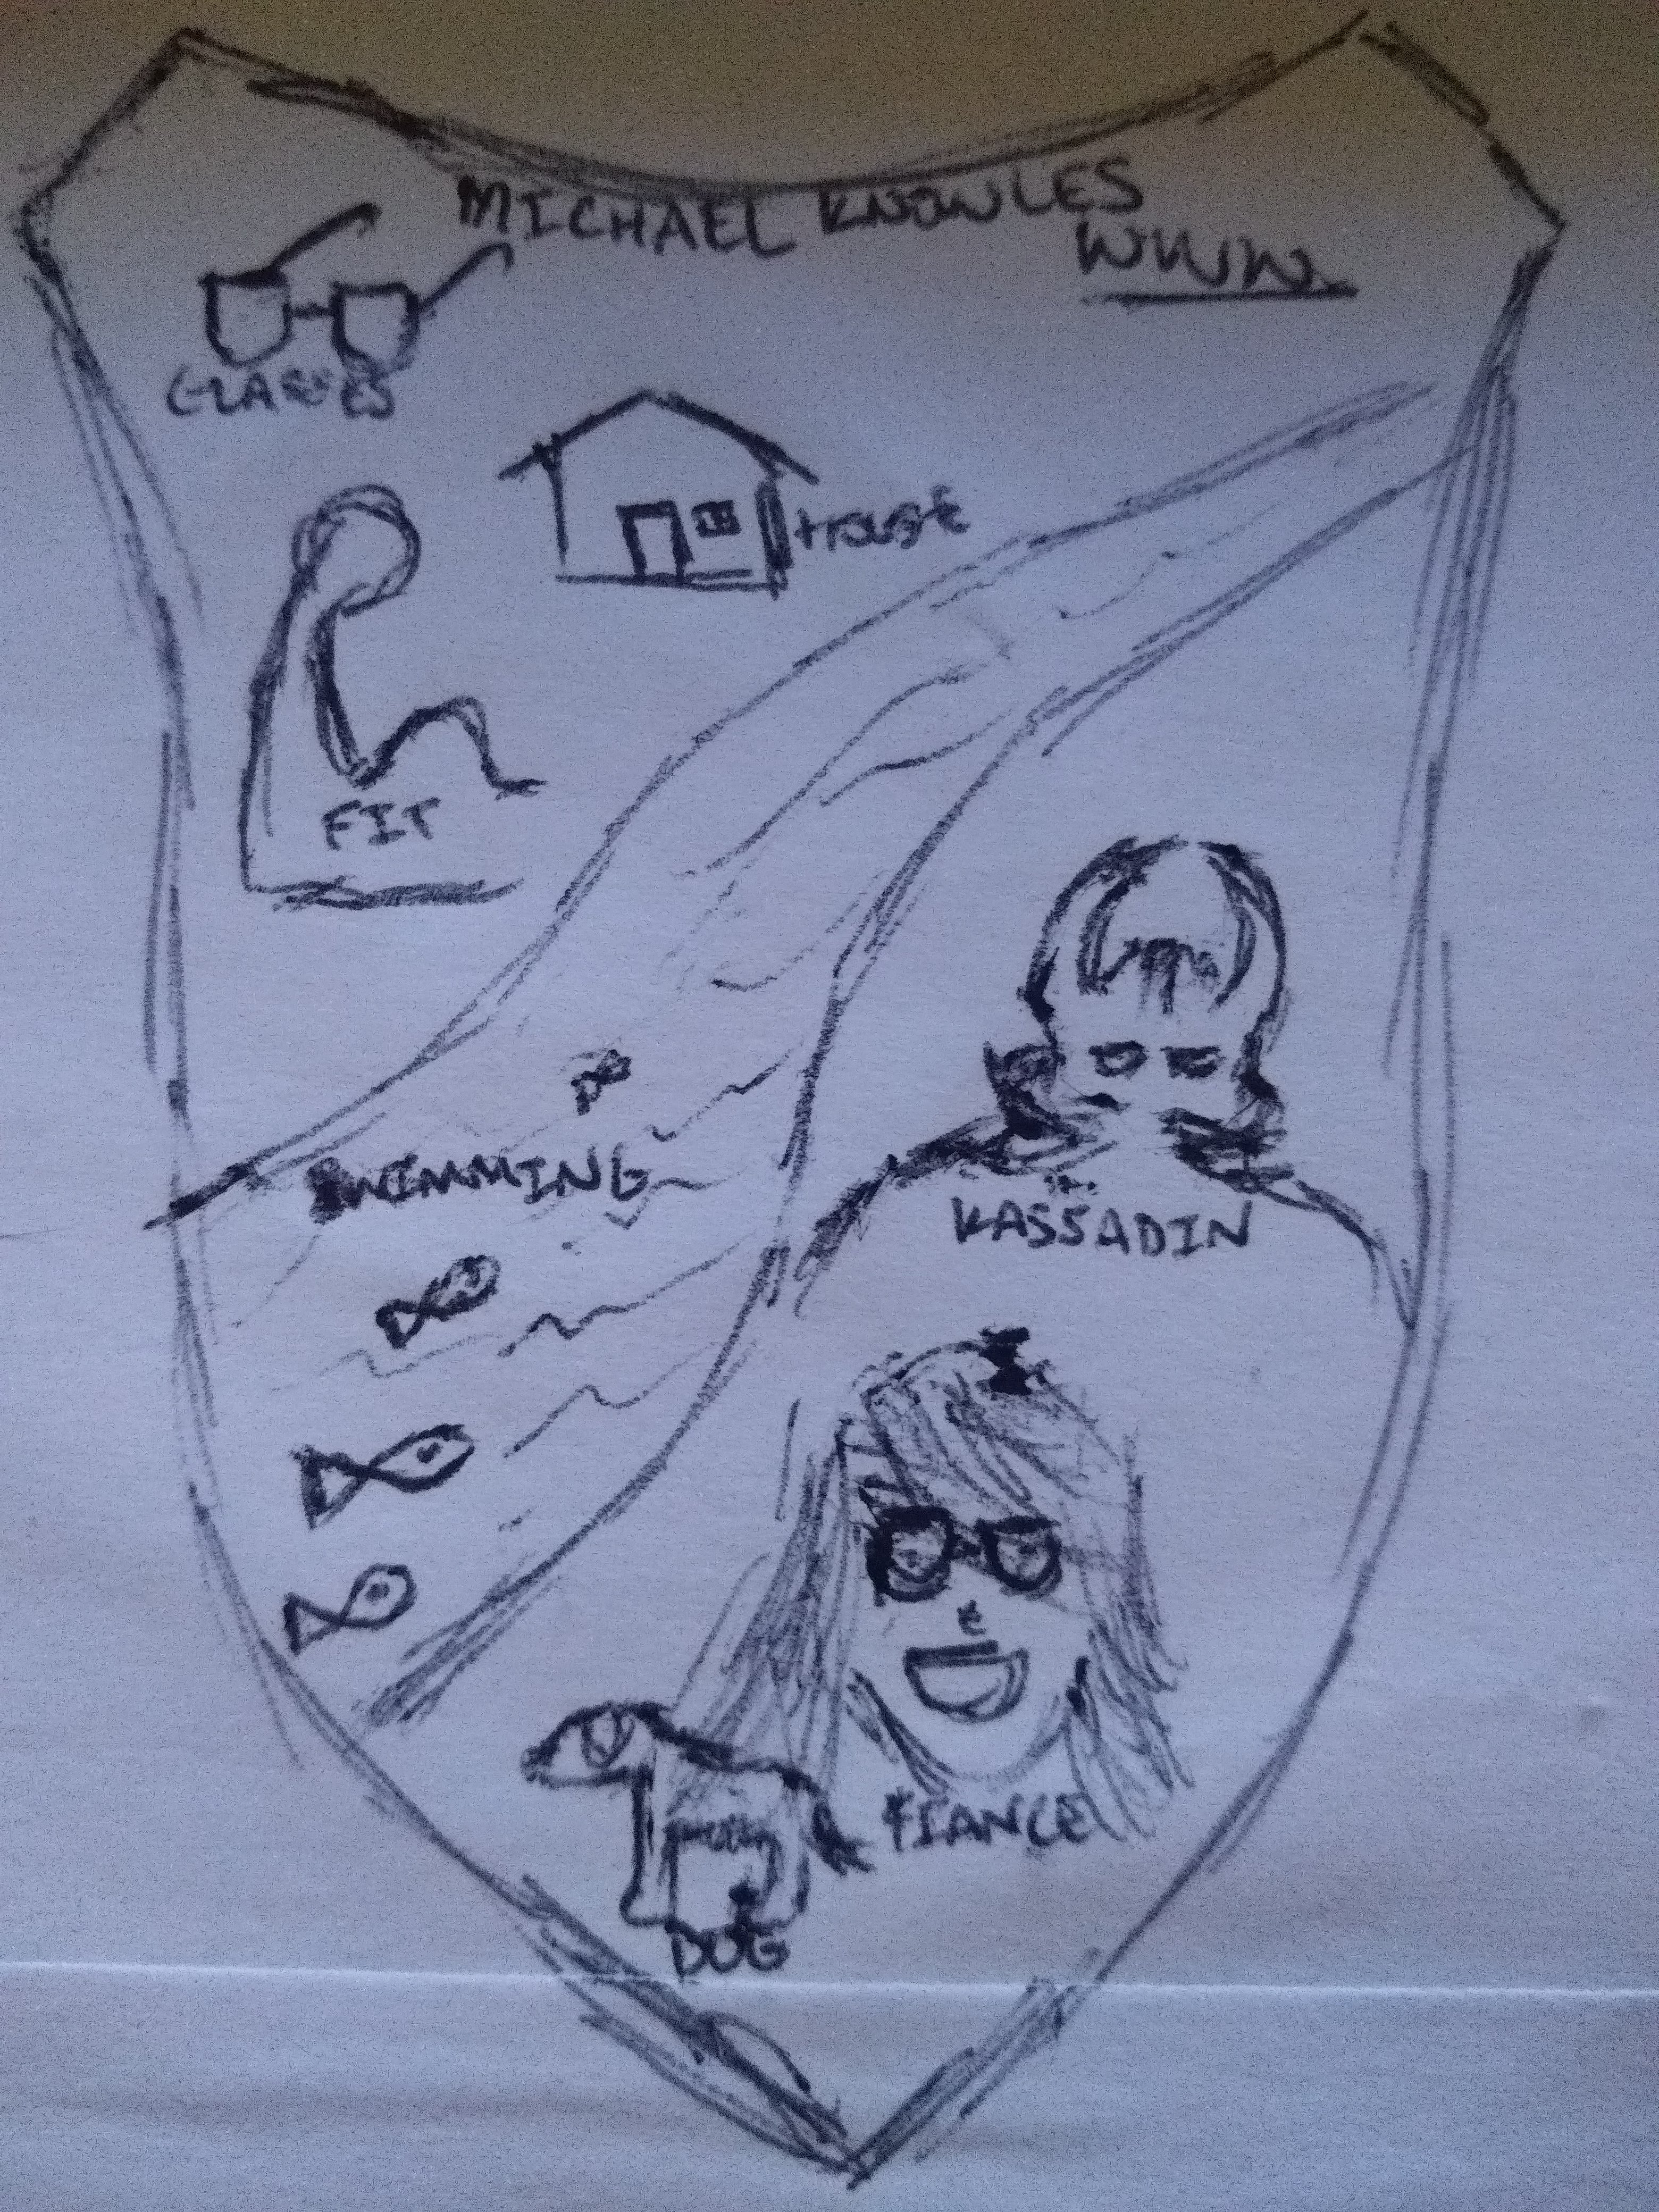 MICHAEL KNOWLES
WWW.
GLASSES
HOUSE
FIT
SWIMMING
KASSADIN
FIANCE
DOG